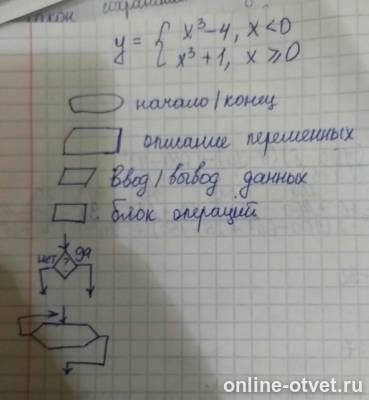 y = { x³ - 4, x < 0
x³ + 1, x ⩾ 0
начало/конец
описание переменных
Ввод/вывод данных
блок операций
нет ? да
online-otvet.ru